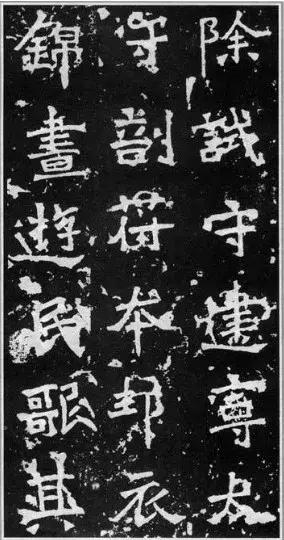 除試守建寧太
守剖苻本邦衣
錦晝遊民歌其